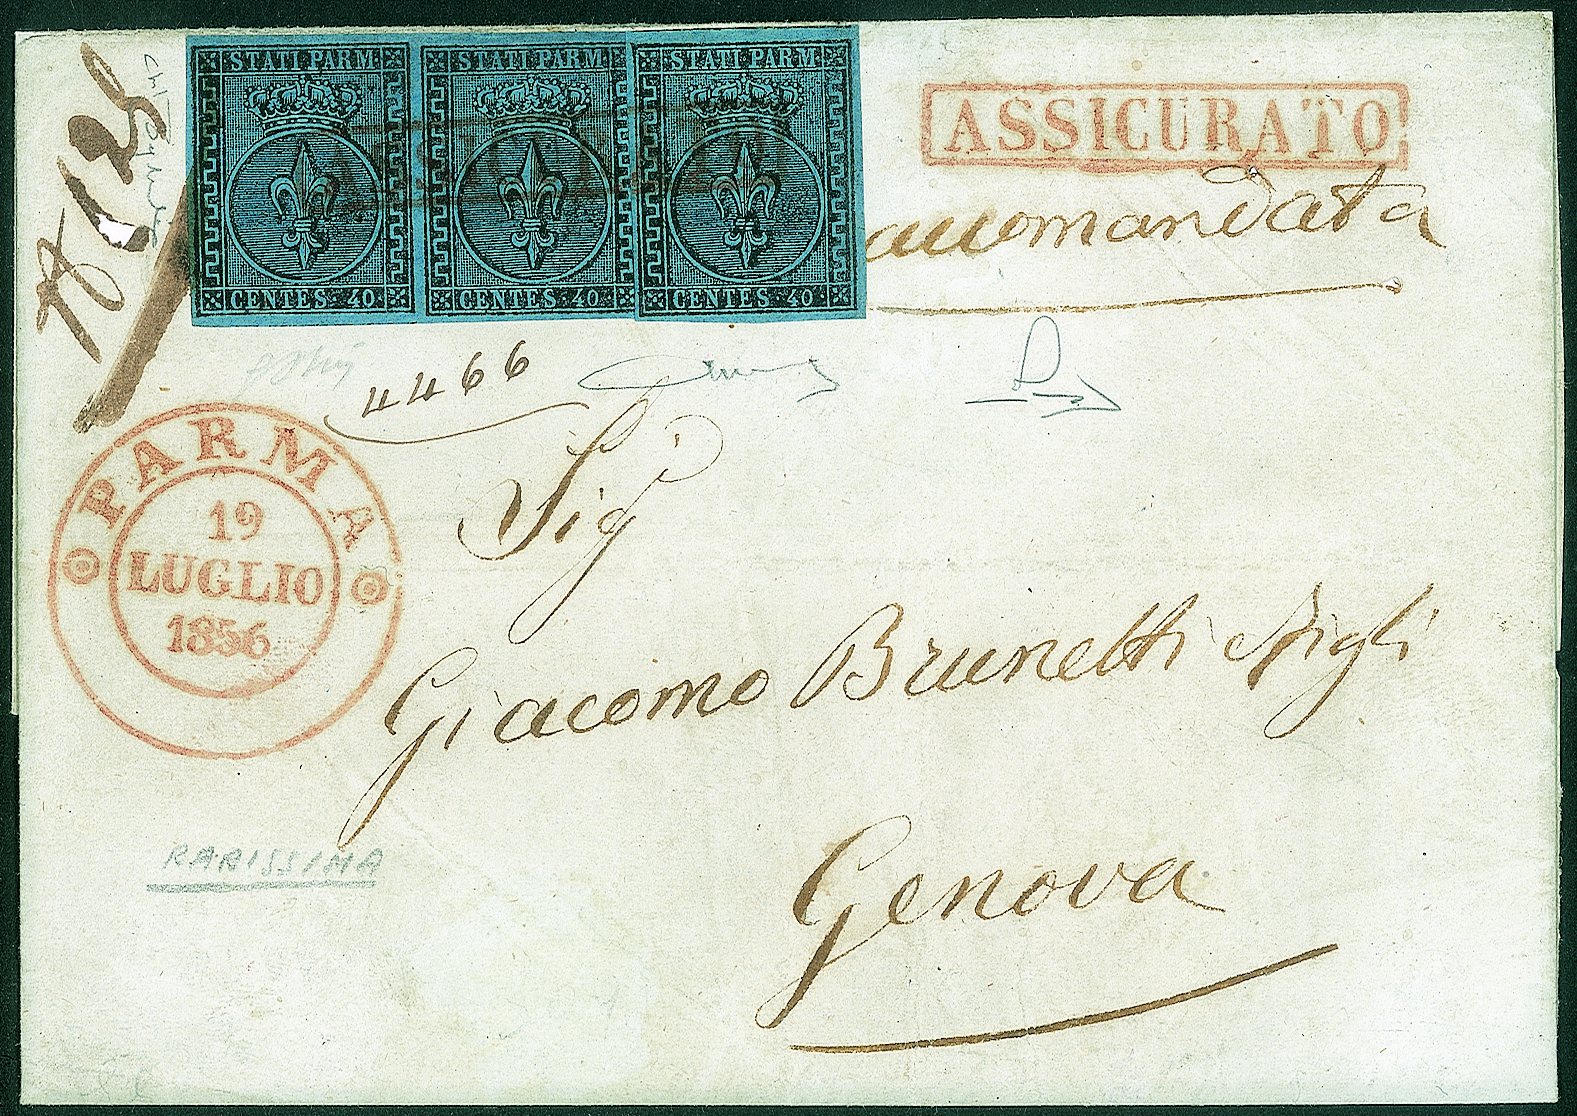 STATI PARM. STATI PARM. STATI PARM.
CENTES. 40 CENTES. 40 CENTES. 40
ASSICURATO
accomandata
4466
PARMA
19
LUGLIO
1856
Sig
Giacomo Brunetti
Genova
RARISSIMA